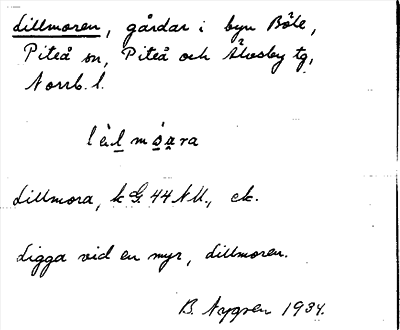 Lillmoren, gårdar i byn Böle,
Piteå sn, Piteå och Älvsby tg,
Norrb. l.
Lillmora, k G. 44 N.U., ek.
Ligga vid en myr, Lillmoren.
B. Nygren 1934.